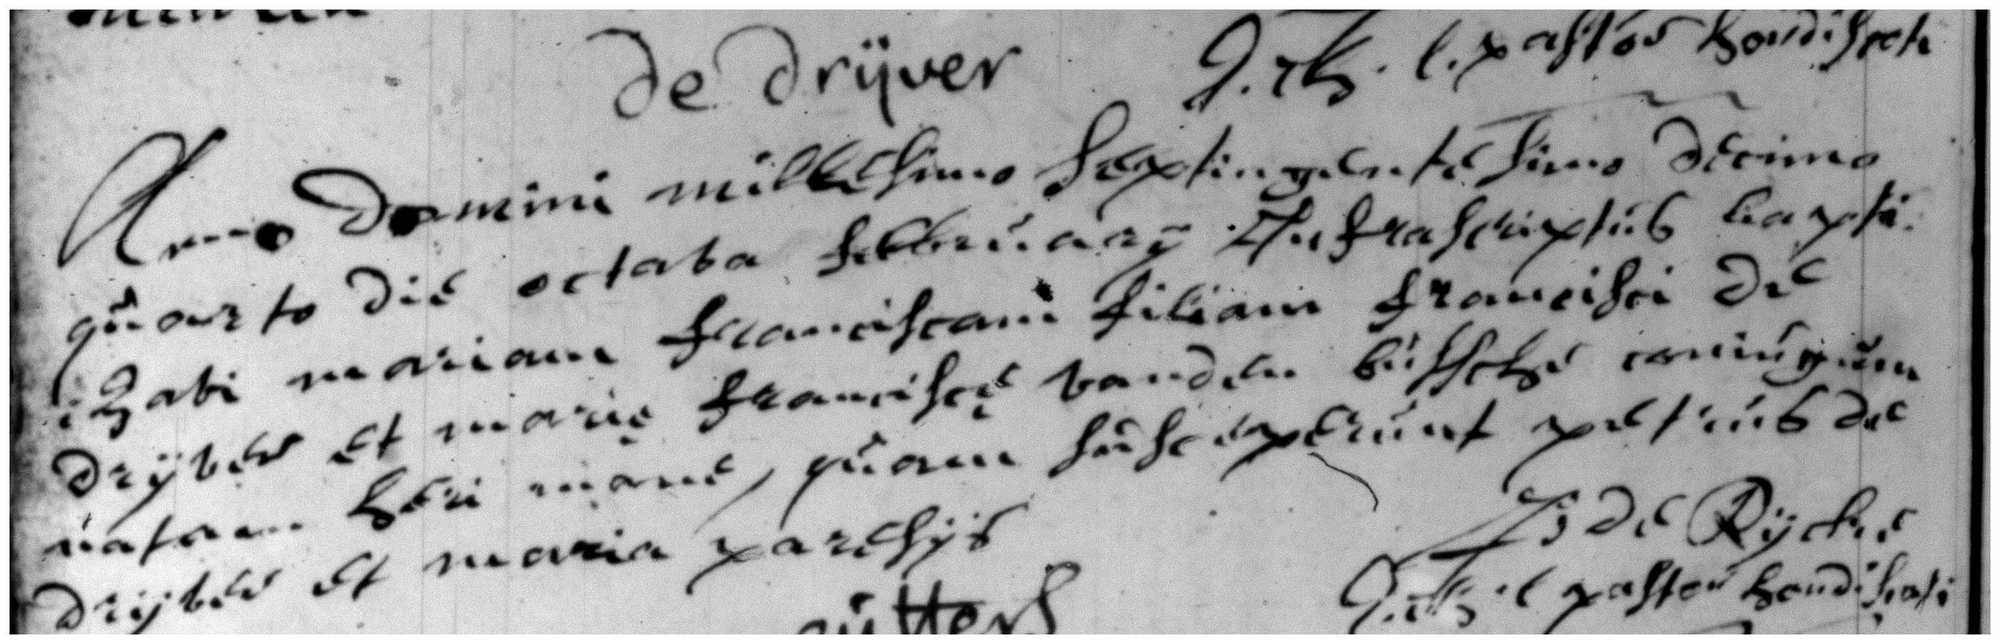 de drijver
pastor hondischoti
Anno Domini millesimo septingentesimo decimo
quarto die octava februarij Infrascriptus bapti-
zavi mariam franciscam filiam francisci de
drijver et marie francisce vanden bussche coniugum
natam heri mane, quam susceperunt petrus de
drijver et maria paresijs
de Rijcke
pastor hondischoti